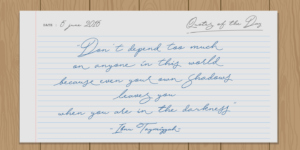 DATE : 5 june 2015
Quotes of the Day
"Don't depend too much
on anyone in this world
because even your own shadows
leaves you
when you are in the darkness."
- Ibnu Taymiyyah -